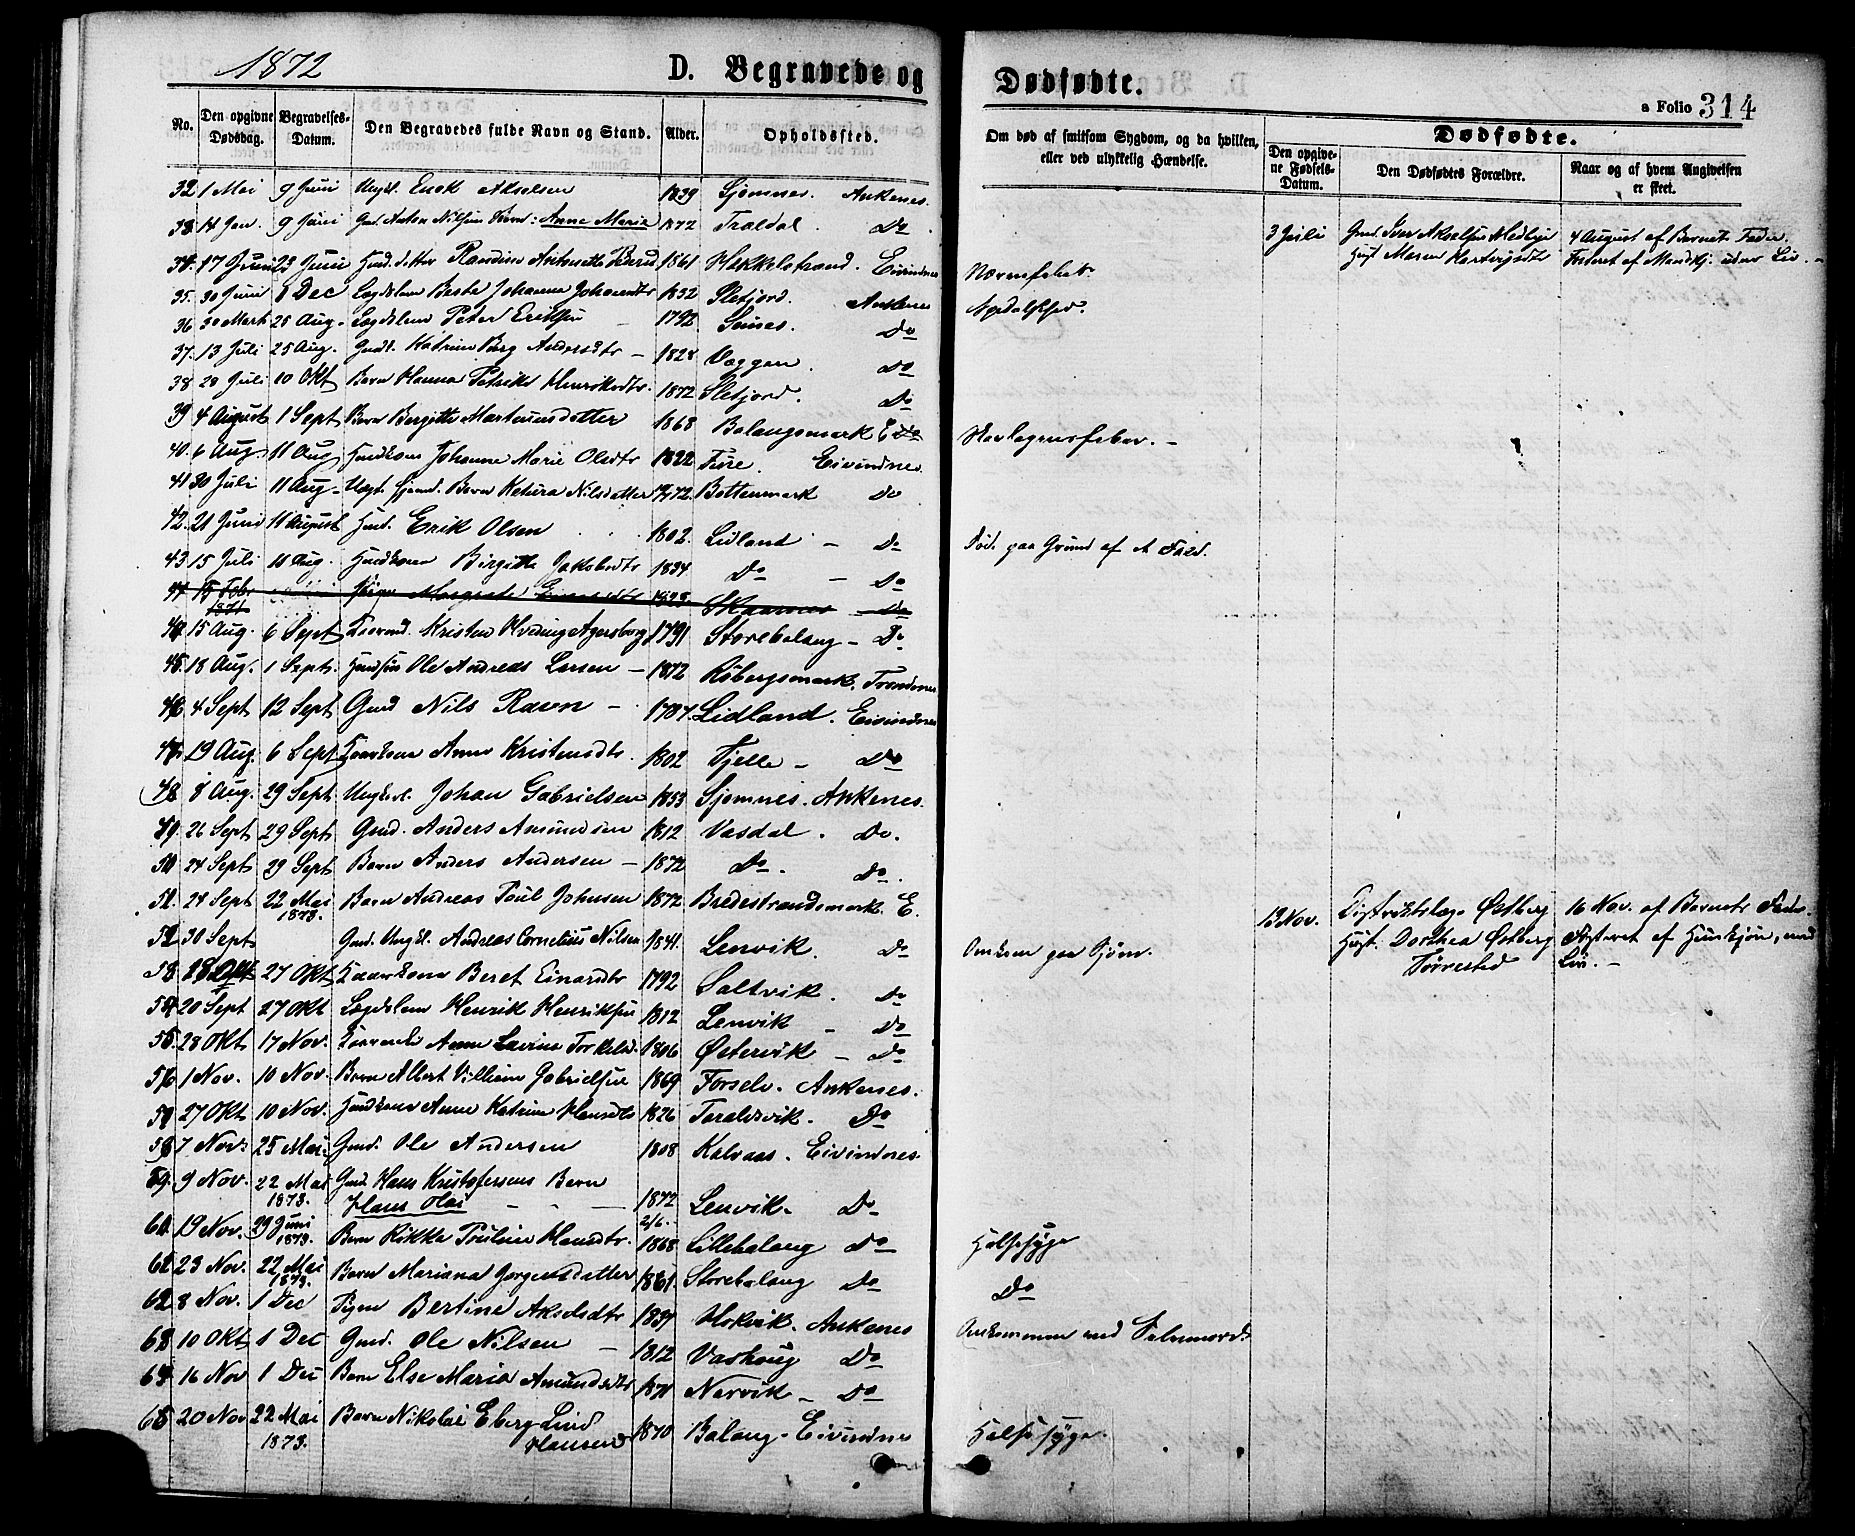 1872
D. Begravede og Dødfødte.
a Folio 314
No. Den opgivne Dødsdag. Begravelses-Datum. Den Begravedes fulde Navn og Stand. Alder. Opholdssted. Om død af smitsom Sygdom, og da hvilken, eller ved ulykkelig Hændelse. Dødfødte. Den opgivne Fødsels-Datum. Den Dødfødtes Forældre. Naar og af hvem Angivelsen er skeet.
32. 1 Mai 9 Juni Ungk. Enok Akselsen 1839 Sjomnes. Ankenes.
33. 14 Jan. 9 Juni Gmd. Anton Nilsen Anne Maria 1872 Traldal. Do
3 Juli Gmd. Iver Akselsen 4 August af Barnets Fader.
Hust Maren Hartvigsdtr Fosteret af Mandkj. uden Liv. -
34. 17 Juni 23 Juni datter Randine 1861 Hekkelstrand. Eivindnes Nervefeber
35. 30 Juni 8 Dec Lægdslem Johanna Johansdtr 1832 Sletjord. Ankenes Spedalskhed.
36. 30 Mark 25 Aug. Lægdslem Peter Eriksen 1792. Do
37. 13 Juli 25 Aug. Katrine Berg Andersdtr - 1828 Væggen. Do
38. 20 Juli 10 Okt Barn Hanna Petrikke Henriksdtr. 1872 Sletjord. Do
39 4 August 1 Sept Barn Bergitte Martinusdatter 1868 Balangsmark E
40. 6 Aug. 11 Aug Johanna Marie Olsdtr 1822 Eivindnes.
41 30 Juli 11 Aug. Barn Ketura Nilsdatter 72. Bottenmark Do
42. 21 Juni 11 August Erik Olsen 1802. Lidland - Do Død paa Grund af
43. 15 Juli 11 Aug. Birgitte Jakobsdtr 1834 Do - Do
44. 15 Feb. 1871 Margrete 1828 Skaarnes Do
15 Aug. 6 Sept Kristen Hveding Agersborg 1791 Storebalang - Do
45. 18 Aug. 1 Sept. Ole Andreas Larsen - 1872 Røbergsmark. Trondenes
46 4 Sept 12 Sept Gmd Nils Ravn - 1787. Lidland. Eivindnes
47. 19 Aug. 6 Sept Anne Kristensdtr 1802 Fjelle - Do
48 8 Aug. 29 Sept Ungkarl. Johan Gabrielsen 1853 Sjomnes. Ankenes.
49. 26 Sept 29 Sept Gmd. Anders Amundsen 1812 Vasdal. Do.
50 24 Sept 29 Sept Barn Anders Andersen - 1872 Do. Do.
51. 24 Sept 22 Mai 1873. Barn Andreas Poul Johnsen 1872 Bredestrandsmark. E.
13 Nov. Distriktslæge Østberg 16 Nov. af Barnets Fader.
Hust. Dorthea Østberg Fosteret af Hunkjøn, med
Tørrestad Liv. -
52 30 Sept Gmd. Ungk. Andreas Cornelius Nilsen 1841. Lenvik. Do Omkom paa Sjøen.
53. 28 Okt 27 Okt Beret Einarsdtr 1792 Saltvik. Do
54 20 Sept 27 Okt Lægdslem Henrik Henriksen 1812 Lenvik - Do
55. 28 Okt 17 Nov. Anne Lavina Torkelsd. 1806 Østervik - Do
56 1 Nov. 10 Nov. Barn Albert Villiam Gabrielsen 1869 Forselv. Ankenes.
57 27 Okt 10 Nov. Anne Katrine Hansdtr 1826 Taraldsvik. Do
58 7 Nov. 25 Mai Gmd. Ole Andersen 1808 Kalvaas. Eivindnes.
59. 9 Nov. 22 Mai 1873. Gmd. Hans Kristofersens Barn
Hans Olai 1872 2/6. Lenvik. Do
60. 19 Nov. 29 Juni 1873. Barn Rikka Pouline Hansdtr. 1868 Lillebalang Do Halssyge
61 23 Nov. 22 Mai 1873. Barn Mariana Jørgensdatter 1861. Storebalang Do Do
62. 8 Nov. 1 Dec Pigen Bertine Akselsdtr 1839 Hokvik. Ankenes
63 10 Okt 1 Dec Gmd. Ole Nilsen 1812 Vashoug Do Omkommen ved Selvmord.
64 16 Nov 1 Dec Barn Else Maria Amundsdtr 1871 Narvik - Do
65 20 Nov 22 Mai 1873. Barn Nikolai Eberg Lind
Hansen 1870 Balang. Eivindnes Halssyge.